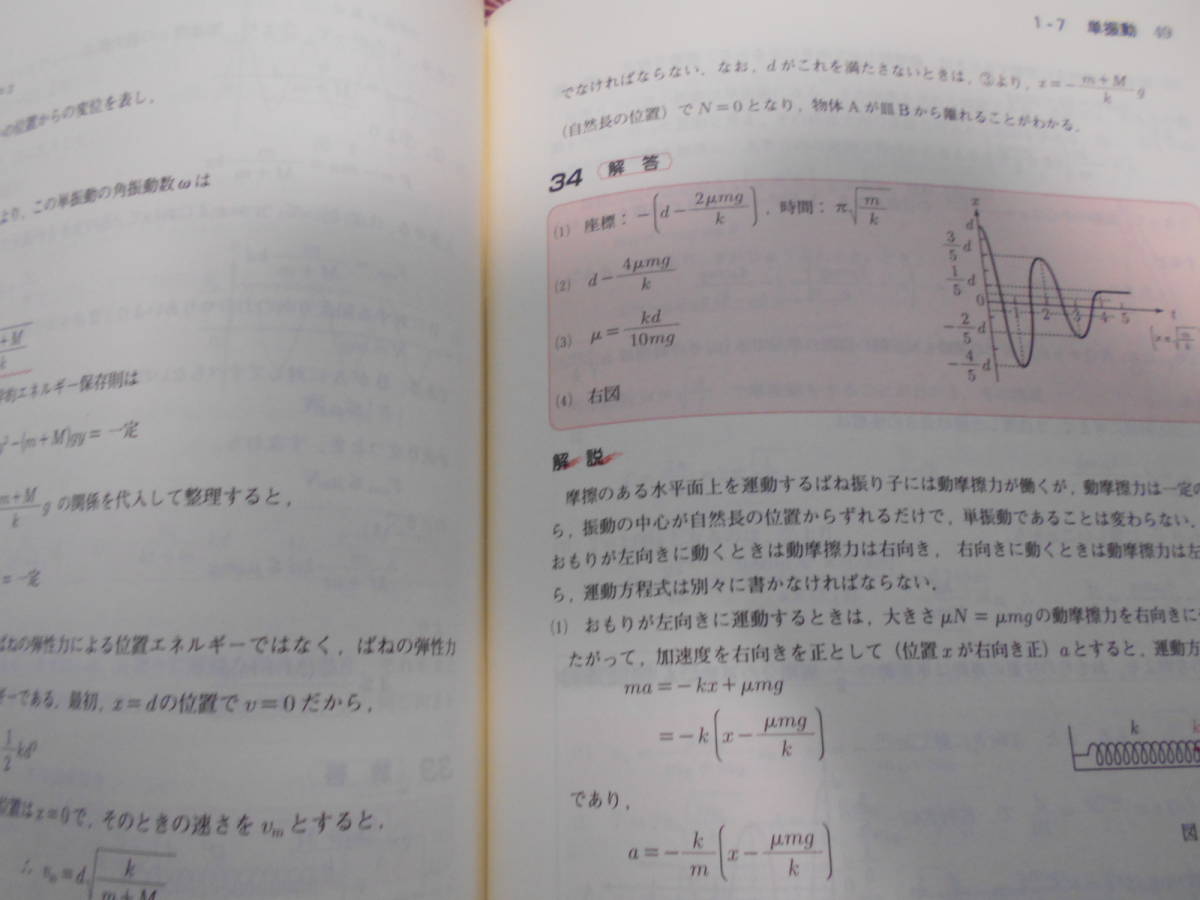 の位置からの変位を表し,
より, この単振動の角振動数ωは
+M
k
エネルギー保存則は
−(m+M)gy= 一定
m+M
k
gの関係を代入して整理すると,
= 一定
ばねの弾性力による位置エネルギーではなく, ばねの弾性力
ギーである. 最初, z=dの位置でv=0だから,
1
2
kd²
位置はz=0で, そのときの速さを vₘとすると,
∴ vₘ=d√
k
m+M
1-7 単振動 49
でなければならない. なお, dがこれを満たさないときは, ③より, z=−(m+M)/k g
(自然長の位置) でN=0となり, 物体Aが皿Bから離れることがわかる.
34 解答
(1) 座標: −(d−2μmg/k), 時間: π√(m/k)
(2) d−4μmg/k
(3) μ=kd/10mg
(4) 右図
x
d
3/5 d
1/5 d
0
−2/5 d
−4/5 d
1 2 3 4 5 t
解説
摩擦のある水平面上を運動するばね振り子には動摩擦力が働くが, 動摩擦力は一定の
ら, 振動の中心が自然長の位置からずれるだけで, 単振動であることは変わらない.
おもりが左向きに動くときは動摩擦力は右向き, 右向きに動くときは動摩擦力は左
ら, 運動方程式は別々に書かなければならない.
(1) おもりが左向きに運動するときは, 大きさ μN=μmgの動摩擦力を右向きに
たがって, 加速度を右向きを正として (位置xが右向き正) aとすると, 運動方
ma=−kx+μmg
=−k(x−μmg/k)
k
であり,
図
a=−k/m(x−μmg/k)